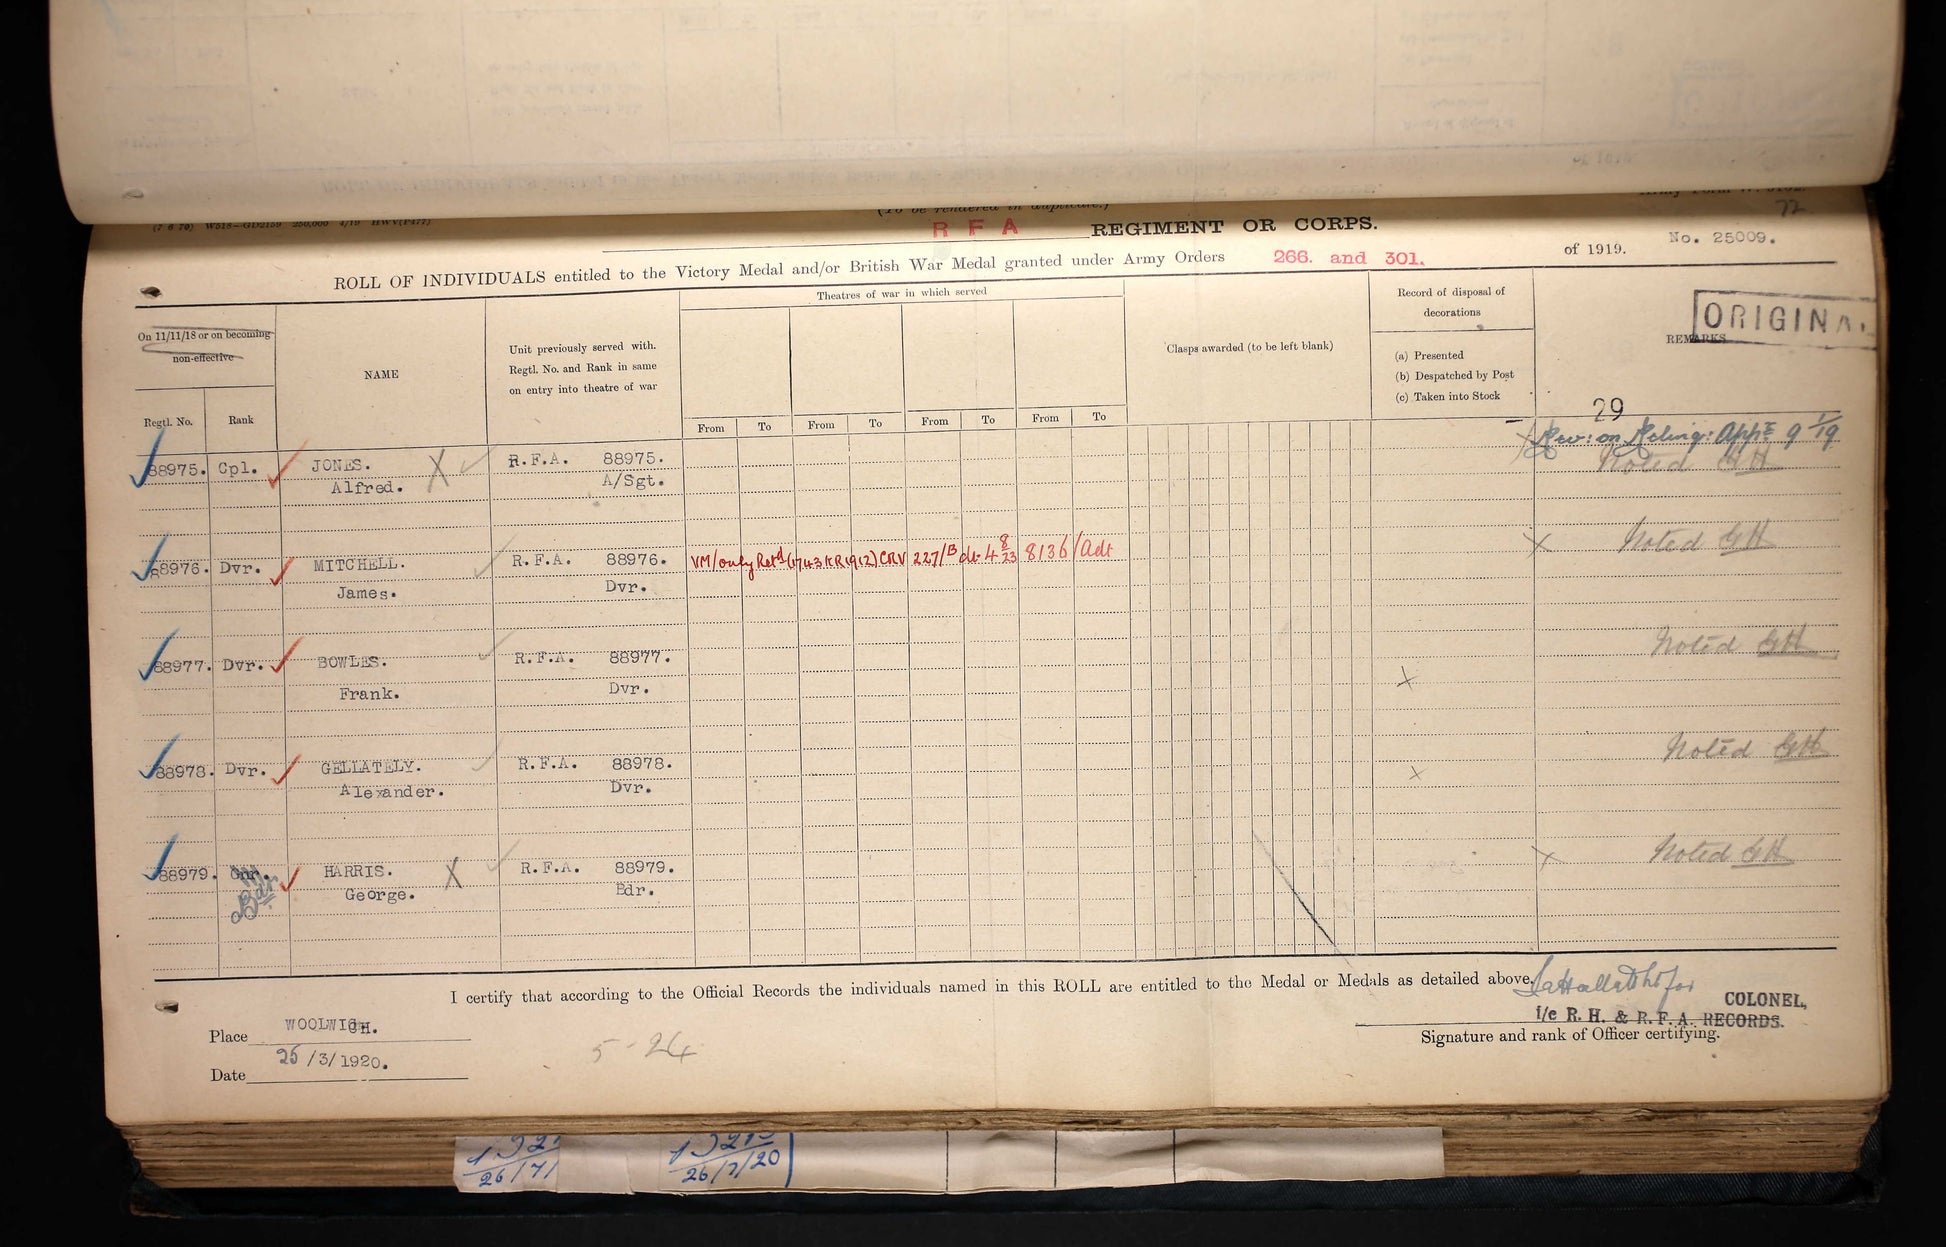 (7 6 70) W518—GD2159 250,000 4/19 HWV(P477)
(To be rendered in duplicate.)
72
R F A REGIMENT OR CORPS.
No. 25009.
ROLL OF INDIVIDUALS entitled to the Victory Medal and/or British War Medal granted under Army Orders 266. and 301. of 1919.
ORIGINAL
On 11/11/18 or on becoming
non-effective
Regtl. No.
Rank
NAME
Unit previously served with.
Regtl. No. and Rank in same
on entry into theatre of war
Theatres of war in which served
From To From To From To From To
Clasps awarded (to be left blank)
Record of disposal of
decorations
(a) Presented
(b) Despatched by Post
(c) Taken into Stock
REMARKS
29
88975. Cpl. JONES. X R.F.A. 88975.
Alfred. A/Sgt.
9 1/19
Noted GH
88976. Dvr. MITCHELL. R.F.A. 88976. VM/only Retd (1743 KR 1912) CRV 227/B dt. 4 8/23 8136/Adt X Noted GH
James. Dvr.
88977. Dvr. BOWLES. R.F.A. 88977. Noted GH
Frank. Dvr. X
88978. Dvr. GELLATELY. R.F.A. 88978. X Noted GH
Alexander. Dvr.
88979. Gnr. HARRIS. X R.F.A. 88979. X Noted GH
Bdr. George. Bdr.
I certify that according to the Official Records the individuals named in this ROLL are entitled to the Medal or Medals as detailed above.
for COLONEL,
i/c R. H. & R. F. A. RECORDS.
Signature and rank of Officer certifying.
Place WOOLWICH.
Date 25/3/1920.
5-24
26/7/
26/7/20